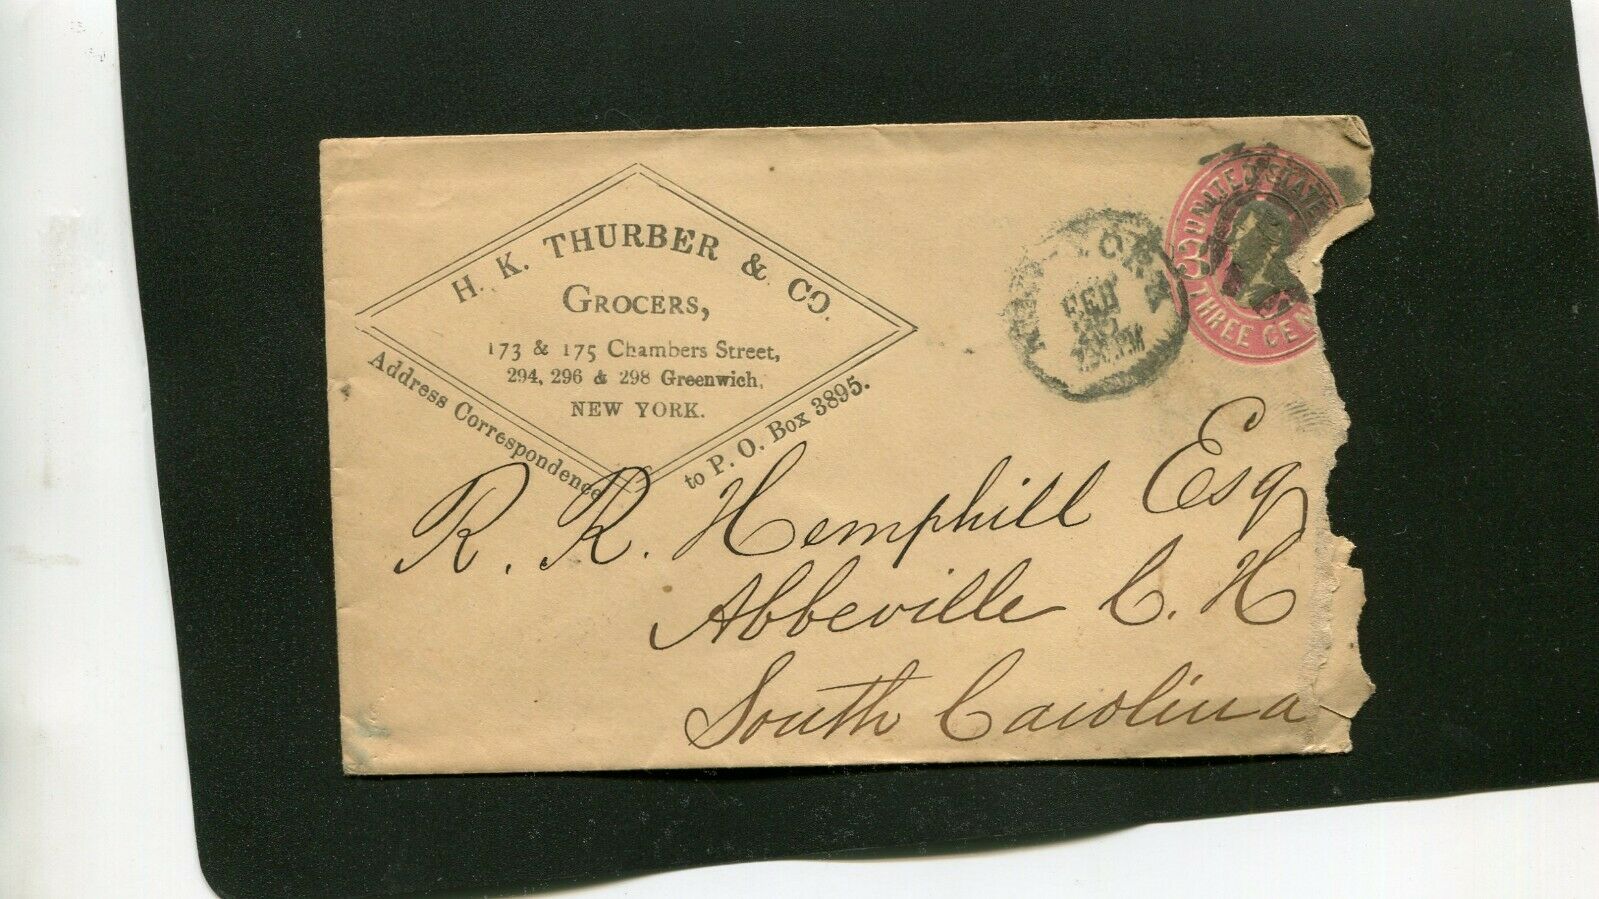 H. K. THURBER & CO.
GROCERS,
173 & 175 Chambers Street,
294, 296 & 298 Greenwich,
NEW YORK.
Address Correspondence to P. O. Box 3895.
NEW YORK
FEB
UNITED STATE
THREE CEN
R. R. Hemphill Esq
Abbeville C. H
South Carolina